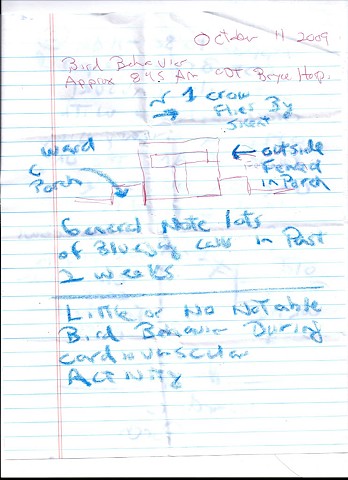 October 11 2009
Bird Behavior
Approx 8:45 Am CDT Bryce Hosp.
~ 1 crow
Flies By
Silent
Ward
C
Porch
outside
Fenced
in Porch
General Note lots
of Bluejay calls in Past
2 weeks
Little or No Notable
Bird Behavior During
cardiovascular
Activity